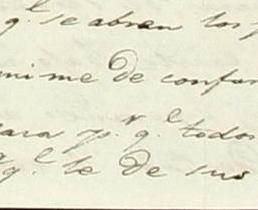 q.^l se abran los p
nime De confor
para p.^r q.^l todos
q.^l se De sus